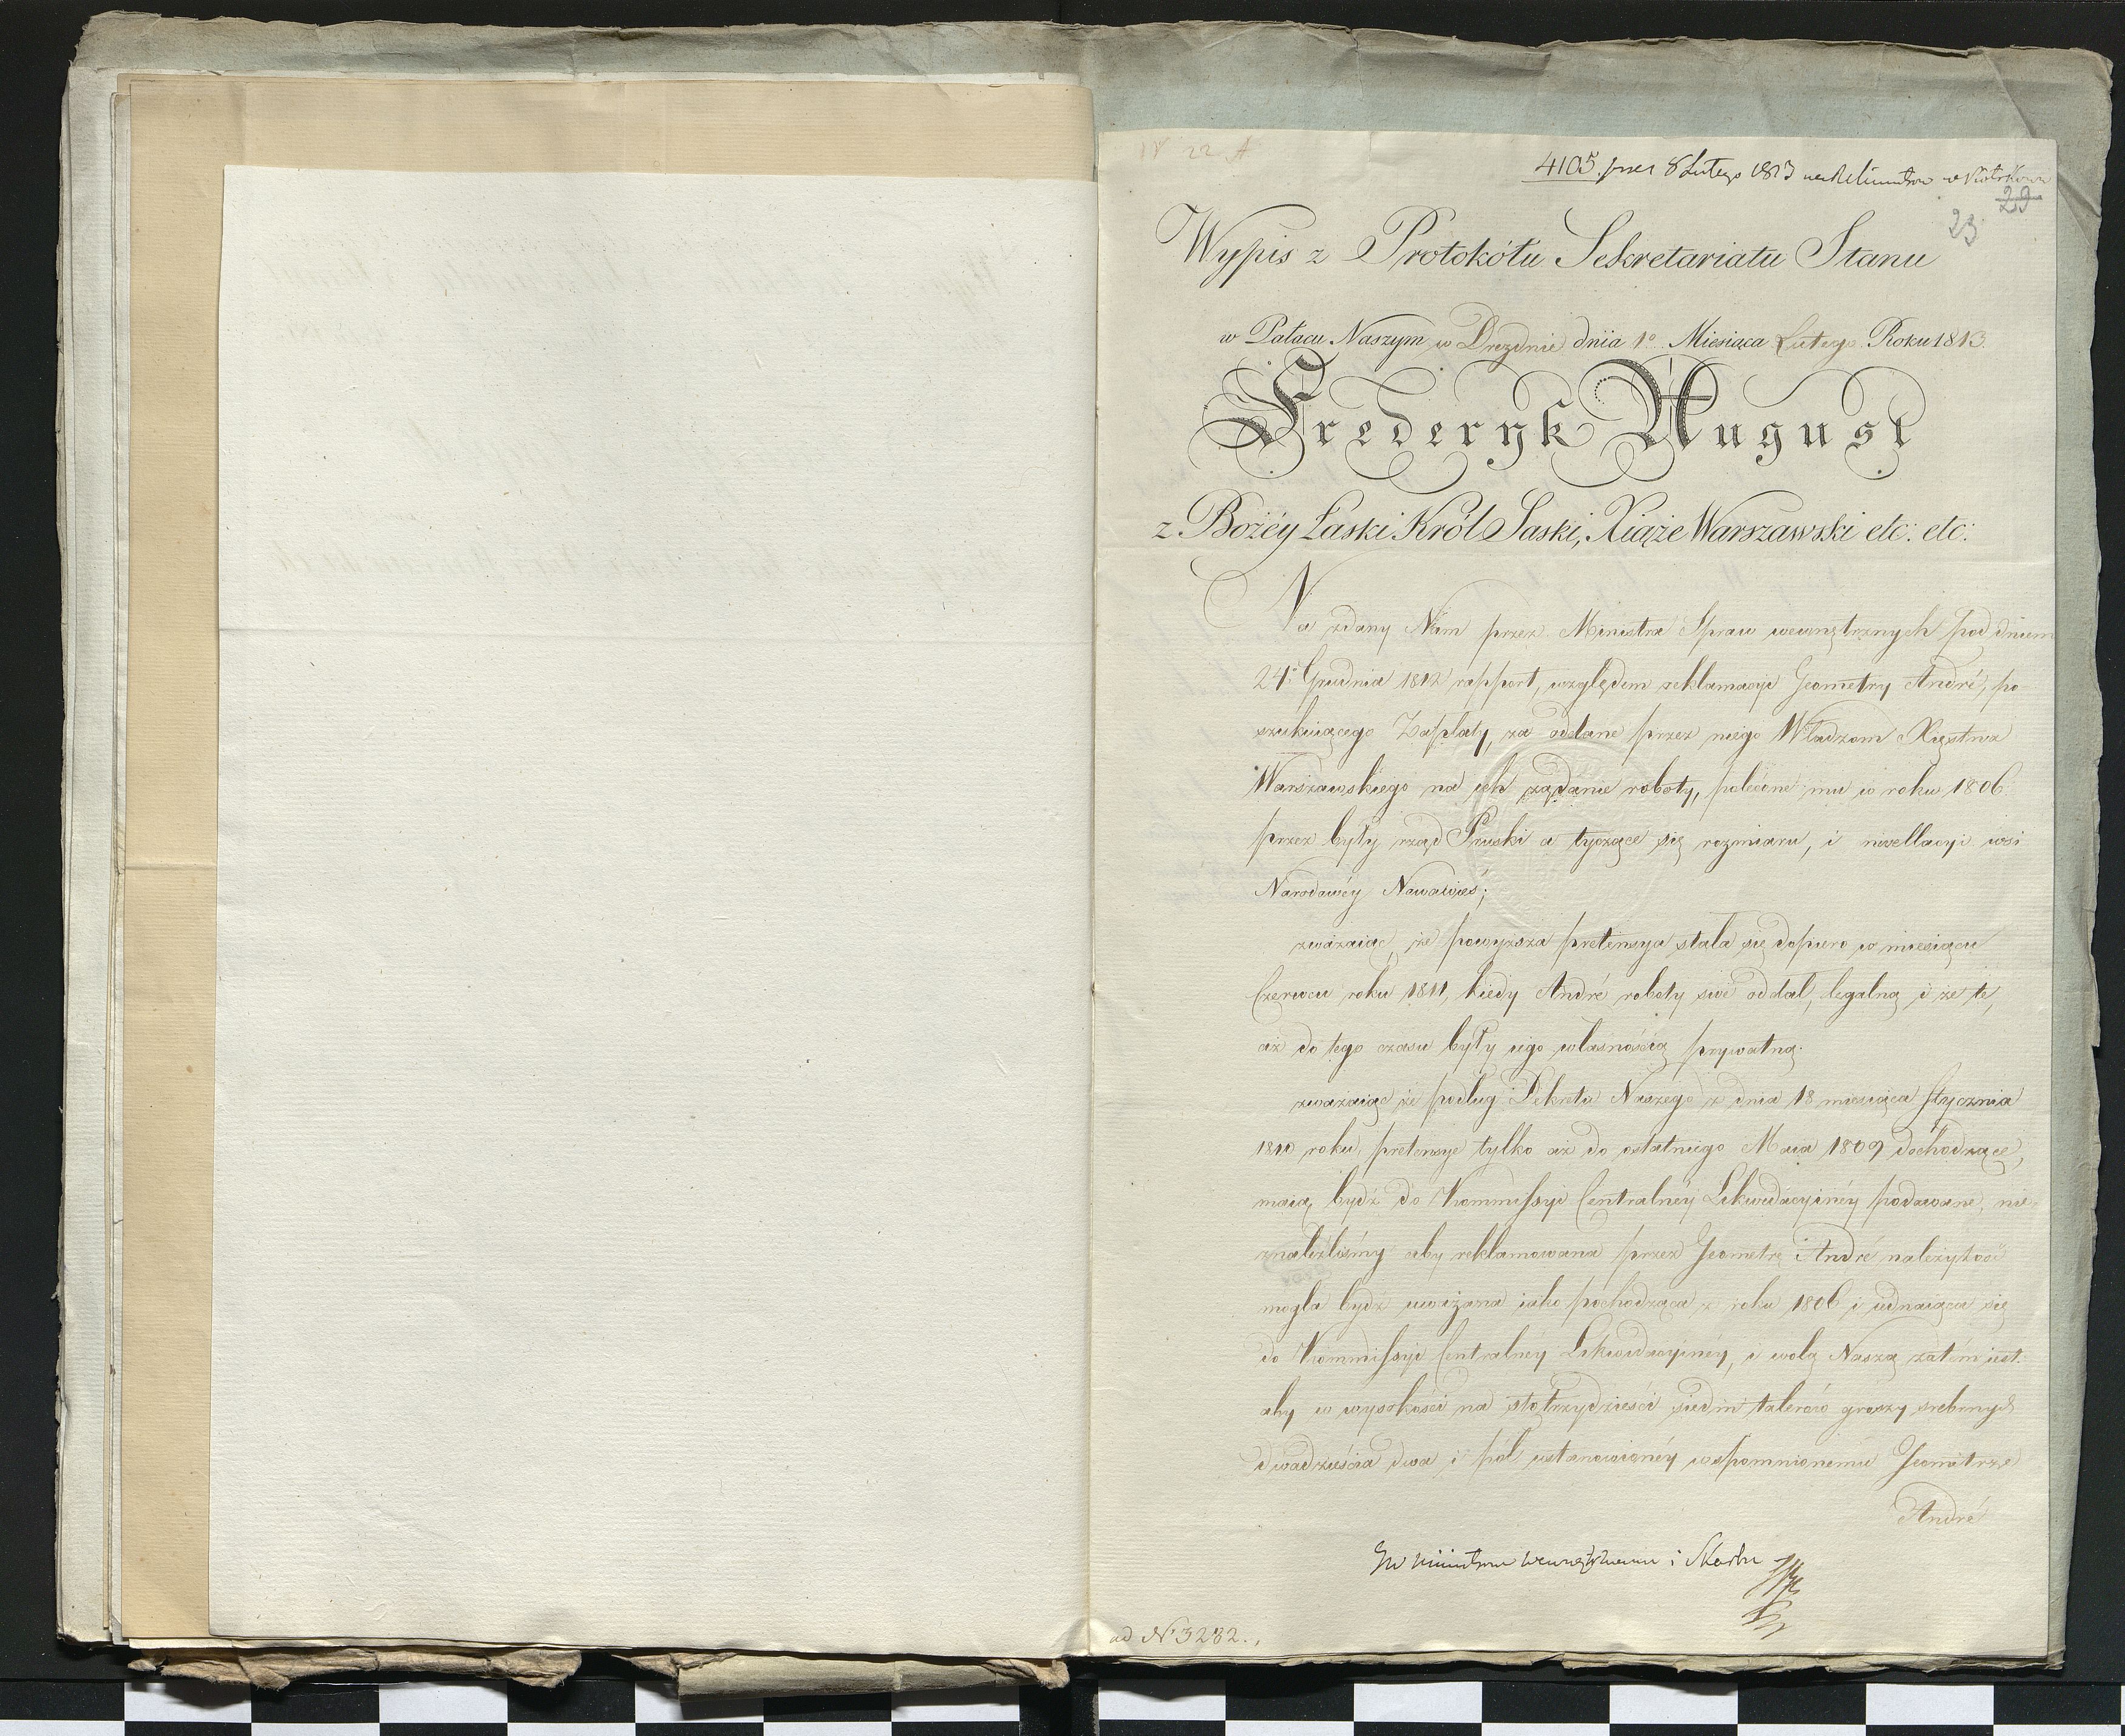 N 22 A
4105. 8 Lutego 1813
29
23
Wypis z Protokółu Sekretariatu Stanu
w Pałacu Naszym w Dreznie dnia 1º Miesiąca Lutego Roku 1813.
Frederyk August
z Bożéy Łaski Król Saski, Xiąże Warszawski etc: etc:
Na zdany Nam przez Ministra Spraw wewnętrznych pod dniem
24º Grudnia 1812 rapport, względem reklamacyi Jeometry André, po-
szukuiącego Zapłaty, za oddane przez niego Władzom Xięstwa
Warszawskiego na ich żądanie roboty, polecone mu w roku 1806
przez były rząd Pruski a tyczące się rozmiaru, i nivellacyi wsi
Narodowéy Nowawieś;
zważaiąc, że powyższa pretensya stała się dopiero w miesiącu
Czerwcu roku 1811, kiedy André roboty swe oddał, legalną i że te,
aż do tego czasu były iego własnością prywatną.
zważaiąc że podług Dekretu Naszego z dnia 18 miesiąca Stycznia
1810 roku, pretensye tylko aż do ostatniego Maia 1809 dochodzące,
maią bydź do Kommissyi Centralnéy Likwidacyinéy podawane, nie-
znaleźliśmy aby reklamowana przez Jeometrę André należytość
mogła bydź uważana iako pochodząca z roku 1806 i udaiąca się
do Kommissyi Centralnéy Likwidacyinéy, i wolą Naszą zatem iest.
aby w wysokości na sto trzydzieści siedm talerów groszy srebrnych
dwadzieścia dwa i pół ustanowionéy wspomnionemu Jeometrze
André
Ministrom Wewnętrznemu i Skarbu
ad Nº 3232.